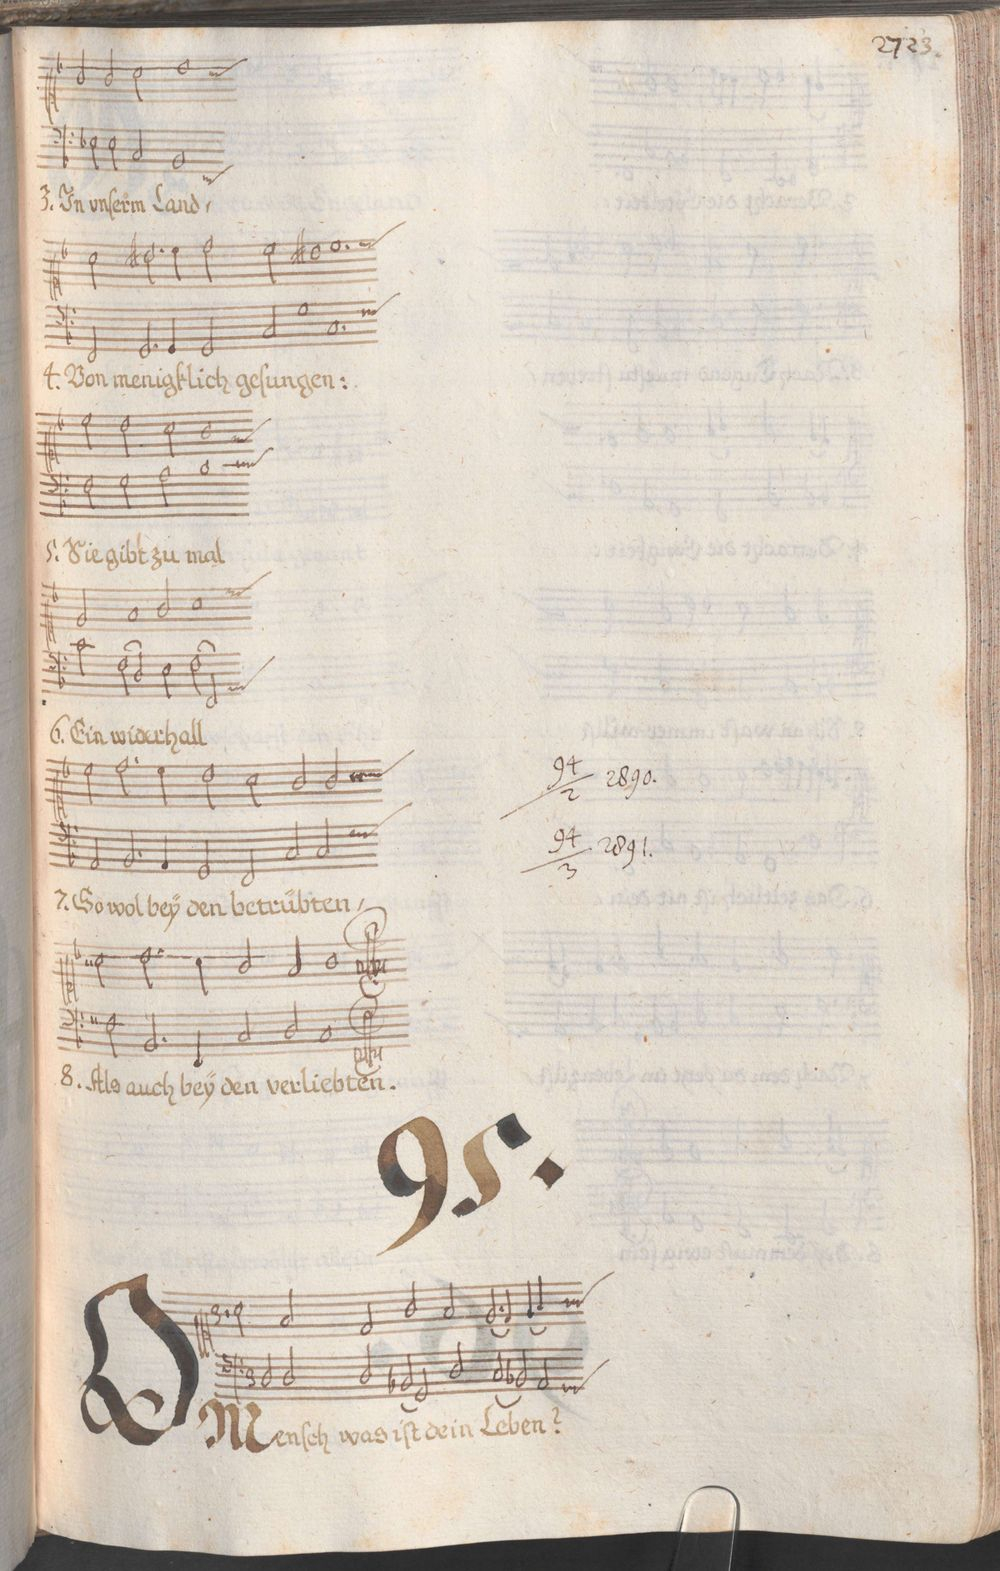 2723.
3. In vnserm Land,
4. Von menigklich gesungen:
5. Sie gibt zu mal
6. Ein widerhall
94/2 2890.
94/3 2891.
7. So wol beÿ den betrübten,
8. Als auch beÿ den verliebten.
95.
O Mensch was ist dein Leben?